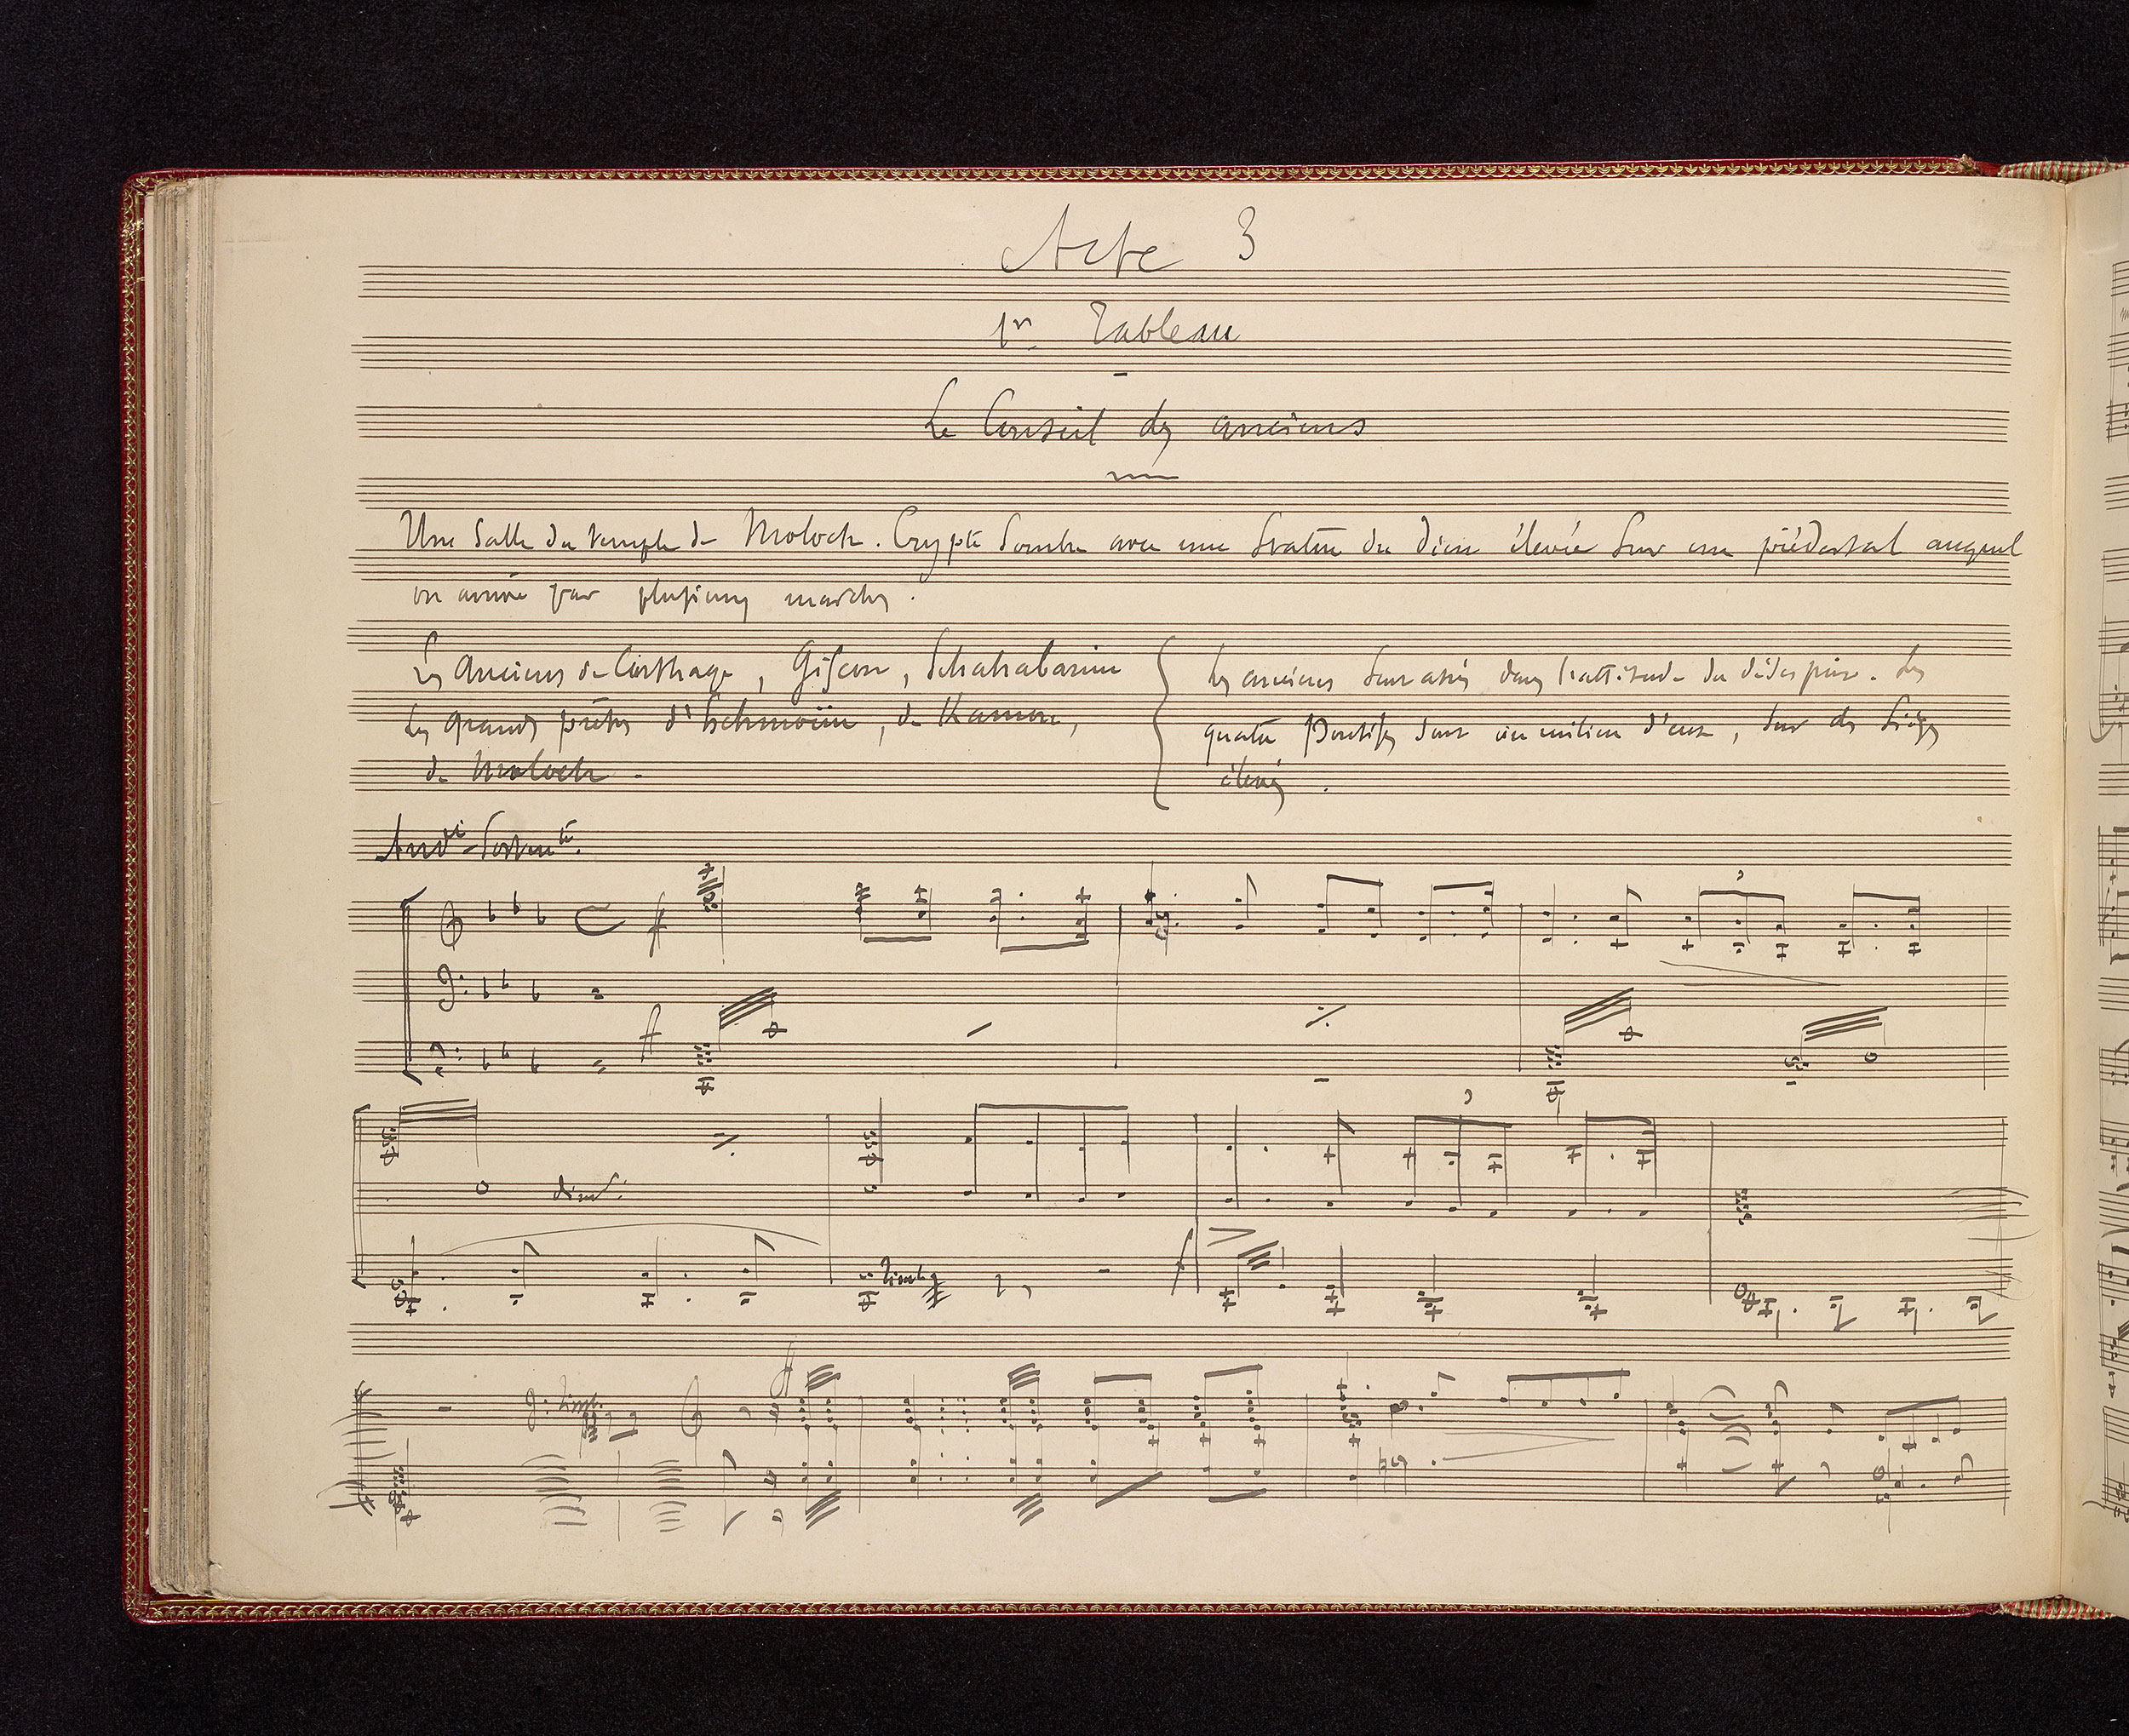 Acte 3
1er Tableau
Le Conseil des anciens
Une Salle du temple de Moloch. Crypte Sombre avec une Statue du Dieu élevée Sur un piédestal auquel
on arrive par plusieurs marches.
Les Anciens de Carthage, Giscon, Schahabarim
Les grands prêtres d'Eschmoün, de Kamon,
de Moloch.
Les anciens Sont assis dans l'attitude du désespoir. Les
quatre Pontifes Sont au milieu d'eux, Sur des Sièges
élevés.
Andte Sostenuto.
3
dim.
Timb.
3
Timb.